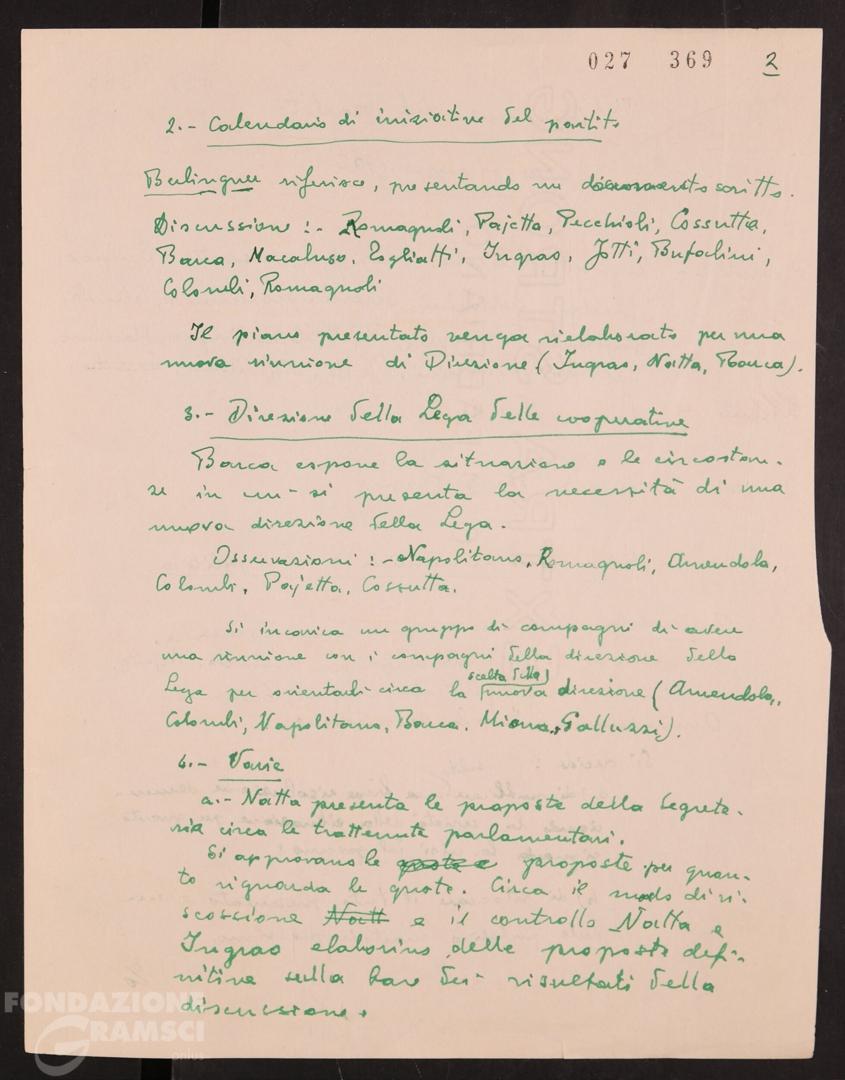 027 369 2
2.- Calendario di iniziative del partito
Berlinguer riferisce, presentando un documento scritto.
Discussione :- Romagnoli, Pajetta, Pecchioli, Cossutta,
Barca, Macaluso, Togliatti, Ingrao, Jotti, Bufalini,
Colombi, Romagnoli
Il piano presentato venga rielaborato per una
nuova riunione di Direzione (Ingrao, Natta, Barca).
3.- Direzione della Lega delle cooperative
Barca espone la situazione e le circostan-
ze in cui si presenta la necessità di una
nuova direzione della Lega.
Osservazioni :- Napolitano, Romagnoli, Amendola,
Colombi, Pajetta, Cossutta.
Si incarica un gruppo di compagni di avere
una riunione con i compagni della direzione della
scelta della
Lega per orientarli circa la nuova direzione (Amendola,
Colombi, Napolitano, Barca, Miana, Galluzzi).
4.- Varie
a.- Natta presenta le proposte della Segrete-
ria circa le trattenute parlamentari.
Si approvano le proposte per quan-
to riguarda le quote. Circa il modo di ri-
scossione Natt e il controllo Natta e
Ingrao elaborino delle proposte defi-
nitive sulla base dei risultati della
discussione.
FONDAZIONE
GRAMSCI
onlus